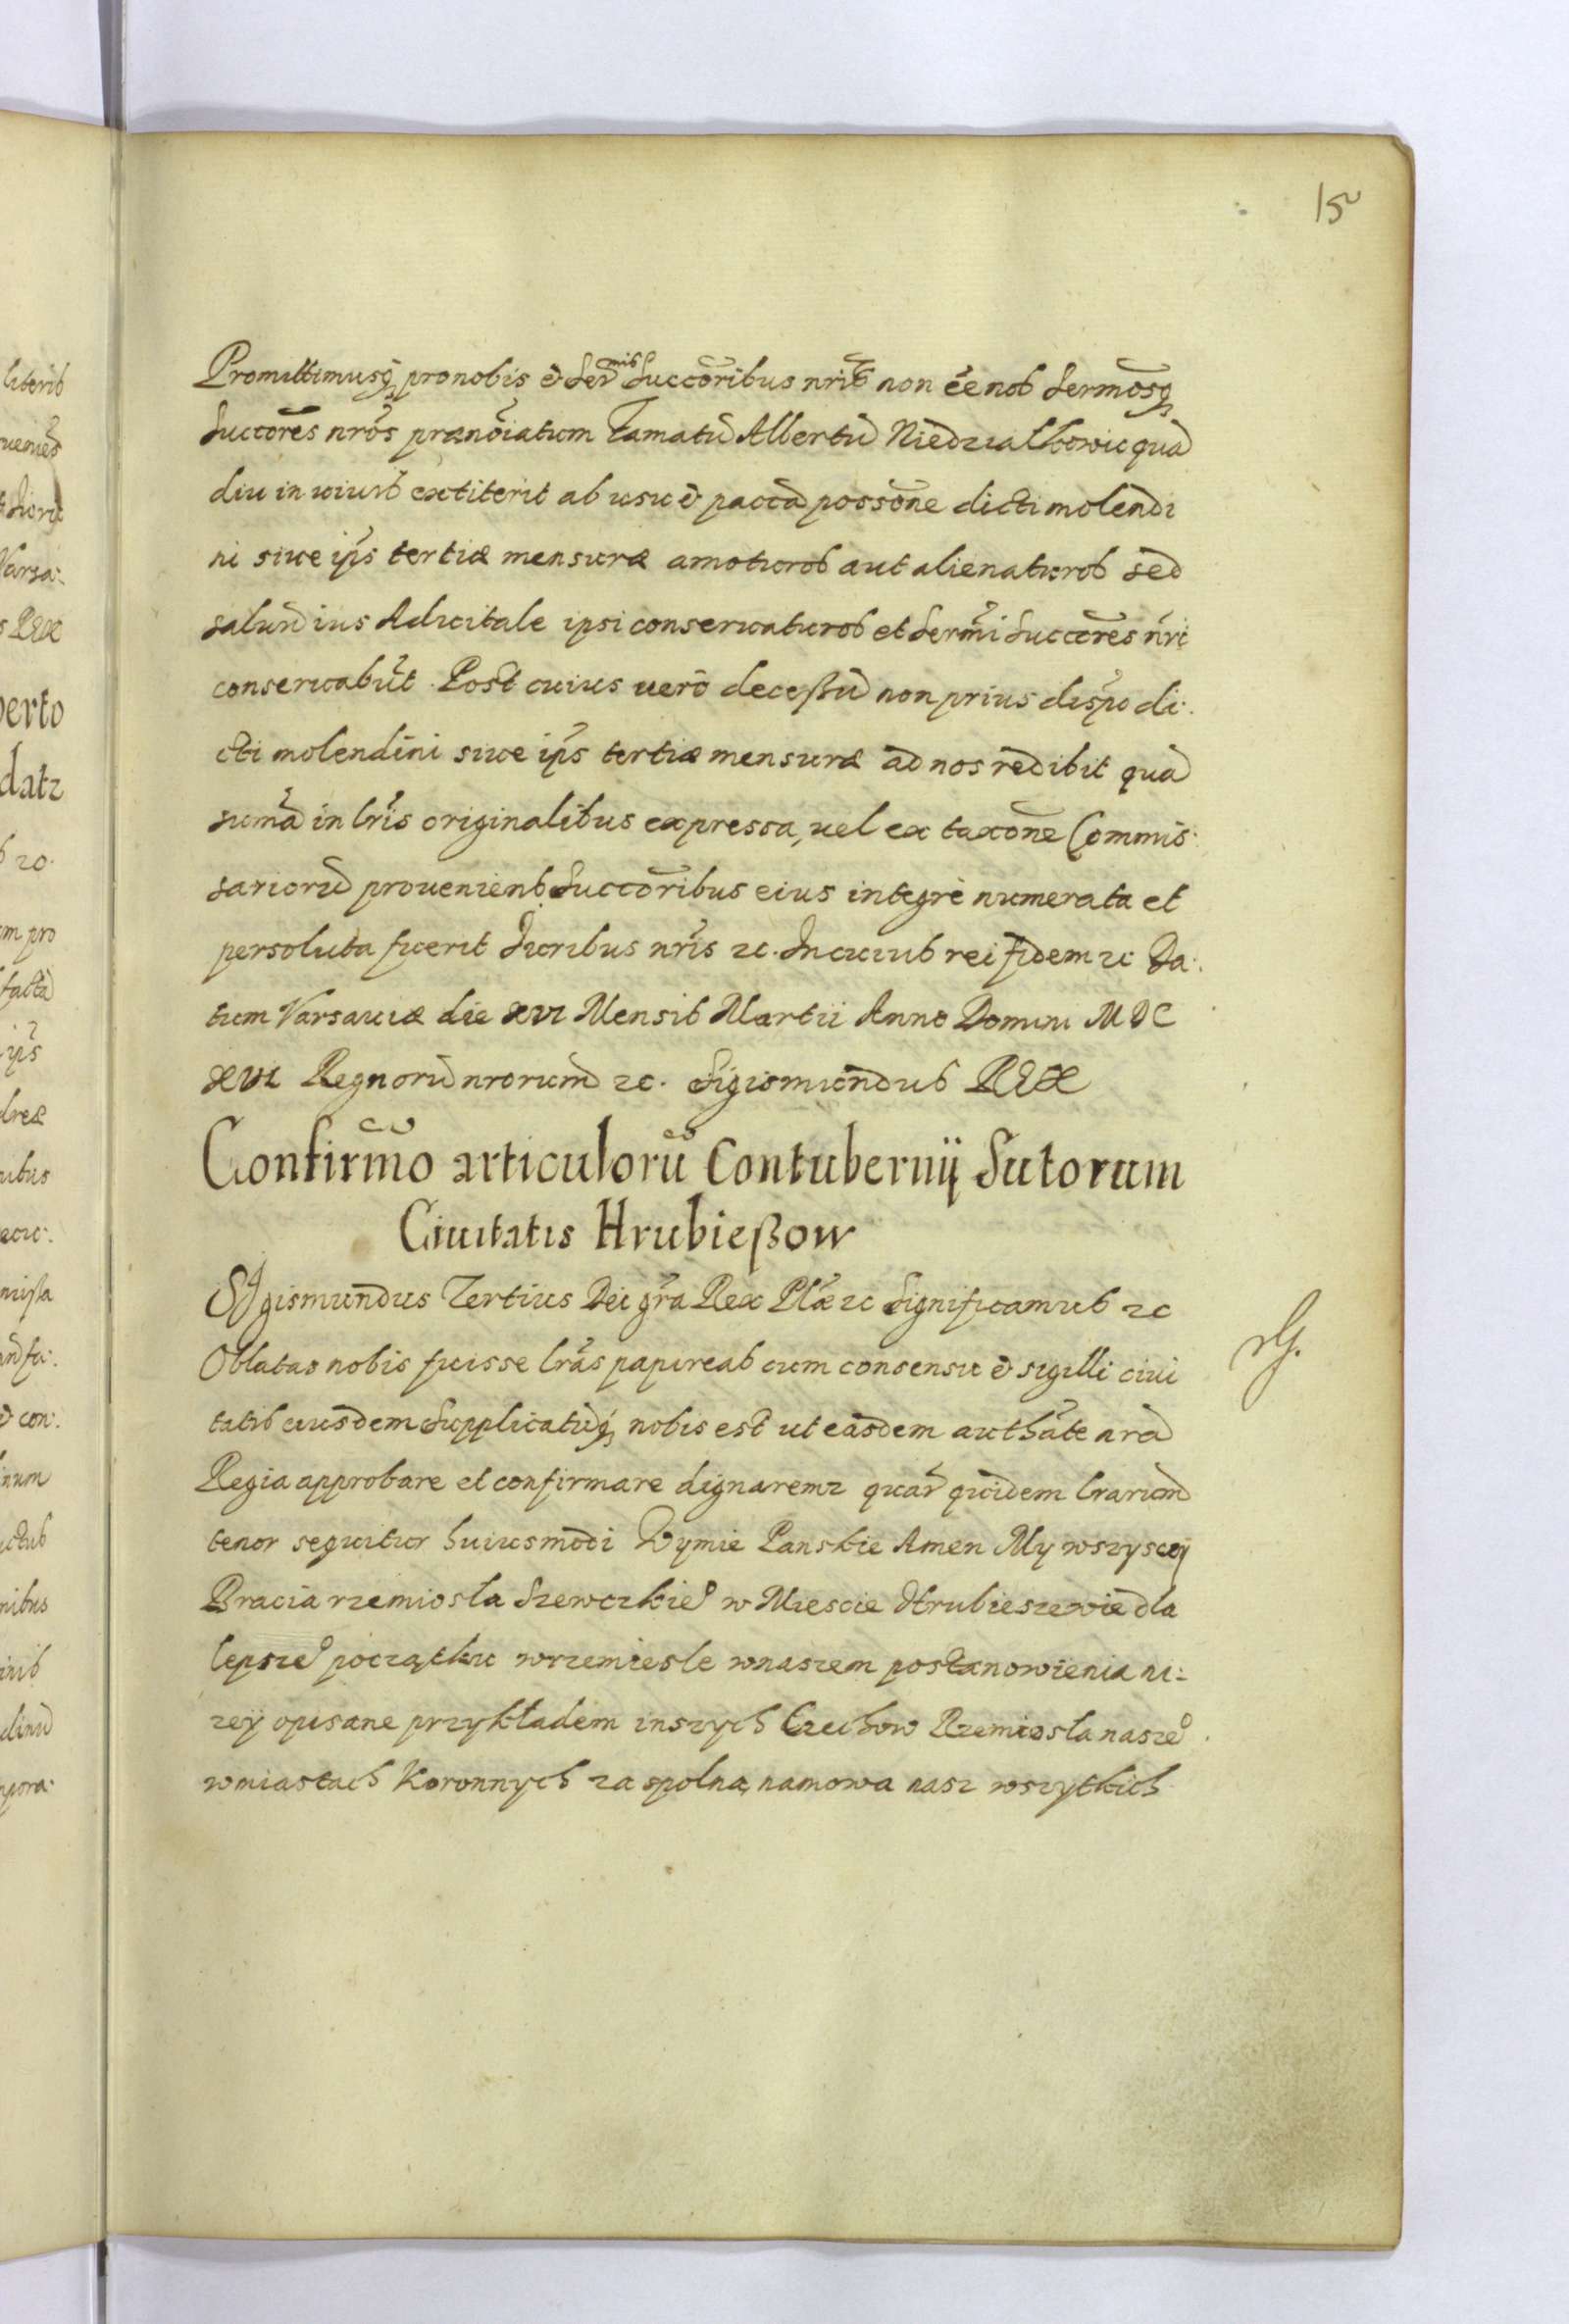 15
Promittimusq, pro nobis et Ser<sup>mis</sup> Succoribus nris non ee nos Sermosq,
Succores nros prænoiatum Famatũ Albertũ Niedzialkowic quã
diu in viuis extiterit ab usu et pacca possone dicti molendi
ni siue ips tertiæ mensuræ amoturos aut alienaturos sed
saluũ ius Aduitale ipsi conseruaturos et Sermi Succores nri
conseruabũt. Post cuius uerò decessũ non prius dispo di:
cti molendini siue ips tertiæ mensuræ ad nos redibit quã
sumã in lris originalibus expressa, uel ex taxone Commis:
sariorũ proueniens Succoribus eius integrè numerata et
persoluta fuerit Iuribus nris zc. In cuius rei fidem zc Da:
tum Varsauiæ die XVI Mensis Martii Anno Domini MDC
XVI Regnorũ nrorum zc. Sigismundus REX
Confirmo articulorũ Contubernij Sutorum
Ciuitatis Hrubießow
Sigismundus Tertius Dei gra Rex Plæ zc Significamus zc
Oblatas nobis fuisse lras papireas cum consensu et sigilli ciui
tatis eiusdem Supplicatũq, nobis est ut easdem authate nrã
Regia approbare et confirmare dignaremr quar quidem lrarum
tenor sequitur huiusmodi Wymie Panskie Amen My wszyscy
Bracia rzemiosła Szewczkieo w Miescie Hrubieszowie dla
lepszeo początku wrzemiesle wnaszem postanowienia ni:
zey opisane przykładem inszych Czechow Rzemiosła naszeo
wmiastach Koronnych za spolną namową nasz wszytkich